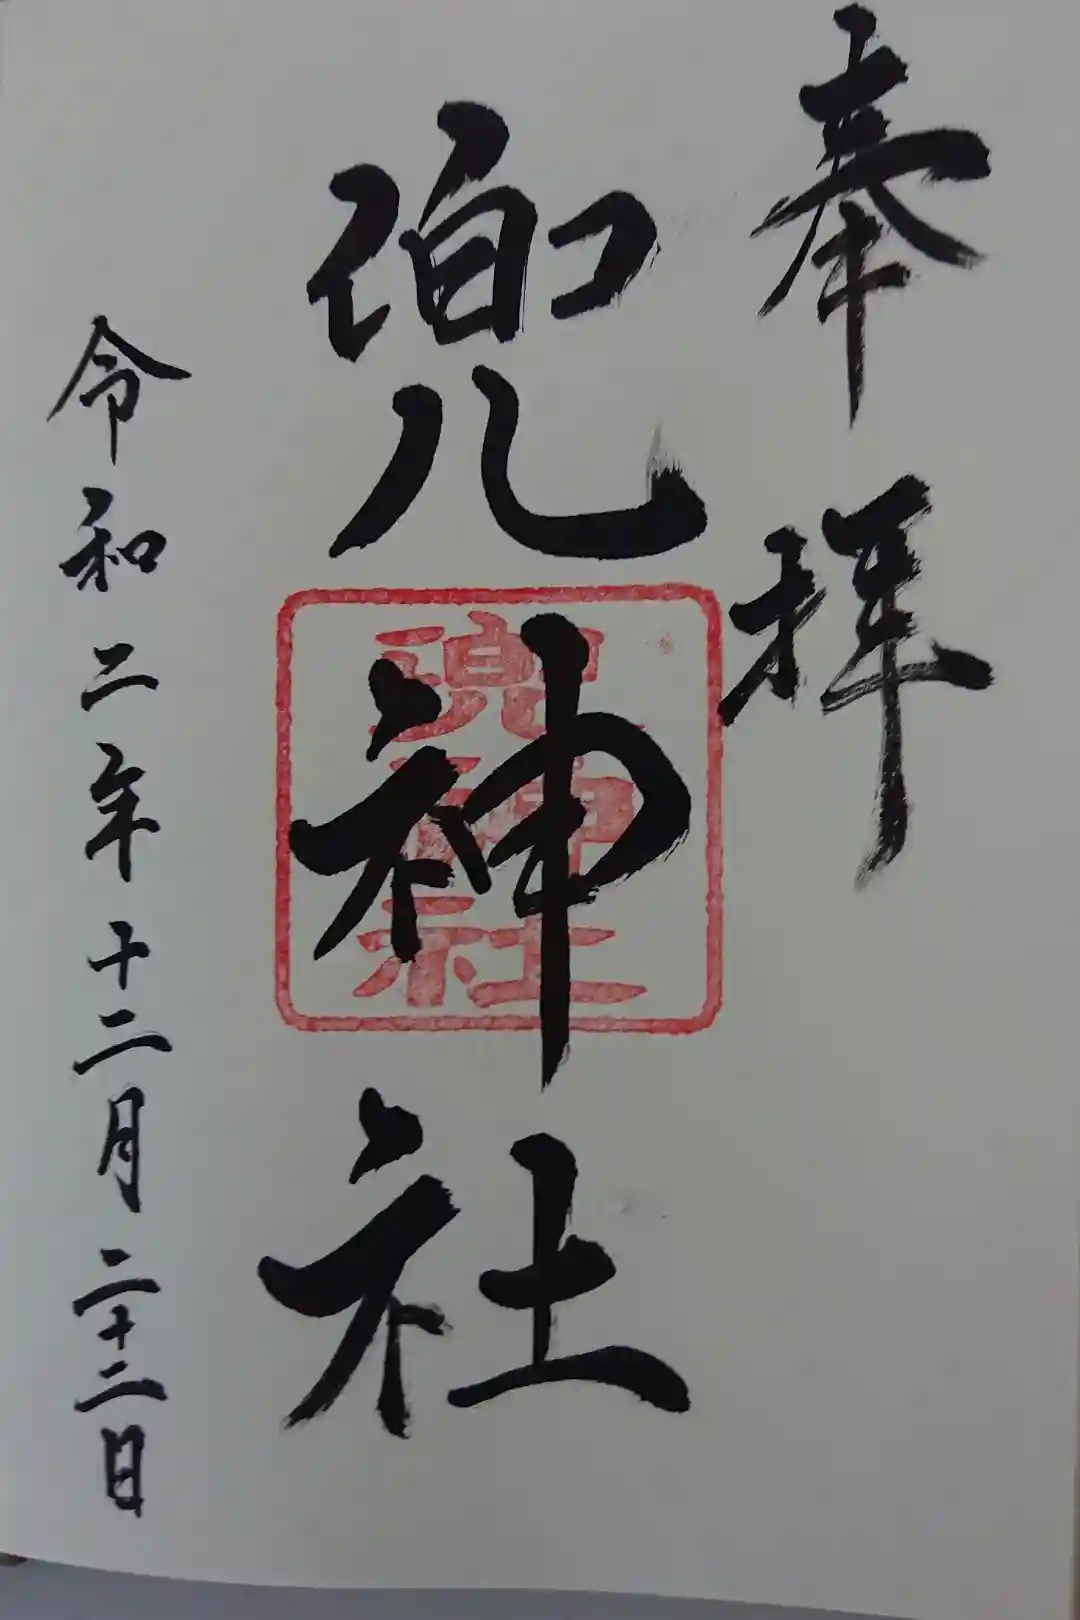 奉拝
兜神社
兜神社
令和二年十二月二十二日